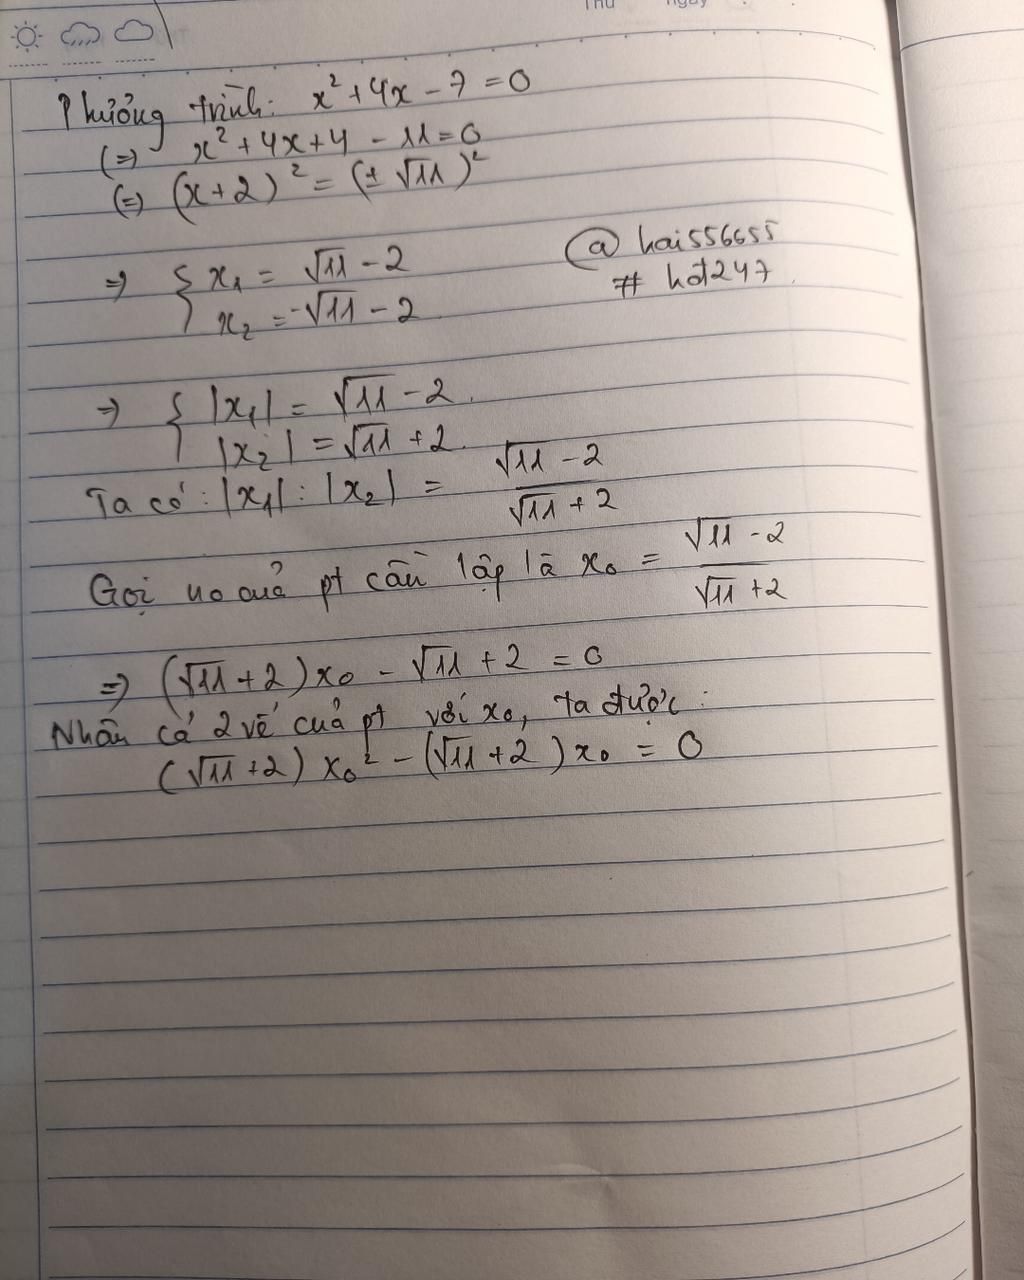 Thứ ngày
Phương trình: x² + 4x - 7 = 0
(=) x² + 4x + 4 - 11 = 0
(=) (x + 2)² = (± √11)²
@hai556655
# hot247
=> { x₁ = √11 - 2
x₂ = -√11 - 2
=> { |x₁| = √11 - 2
|x₂| = √11 + 2
Ta có: |x₁| : |x₂| = (√11 - 2)/(√11 + 2)
Gọi no của pt cần lập là x₀ = (√11 - 2)/(√11 + 2)
=> (√11 + 2)x₀ - √11 + 2 = 0
Nhân cả 2 vế của pt với x₀, ta được:
(√11 + 2) x₀² - (√11 + 2) x₀ = 0